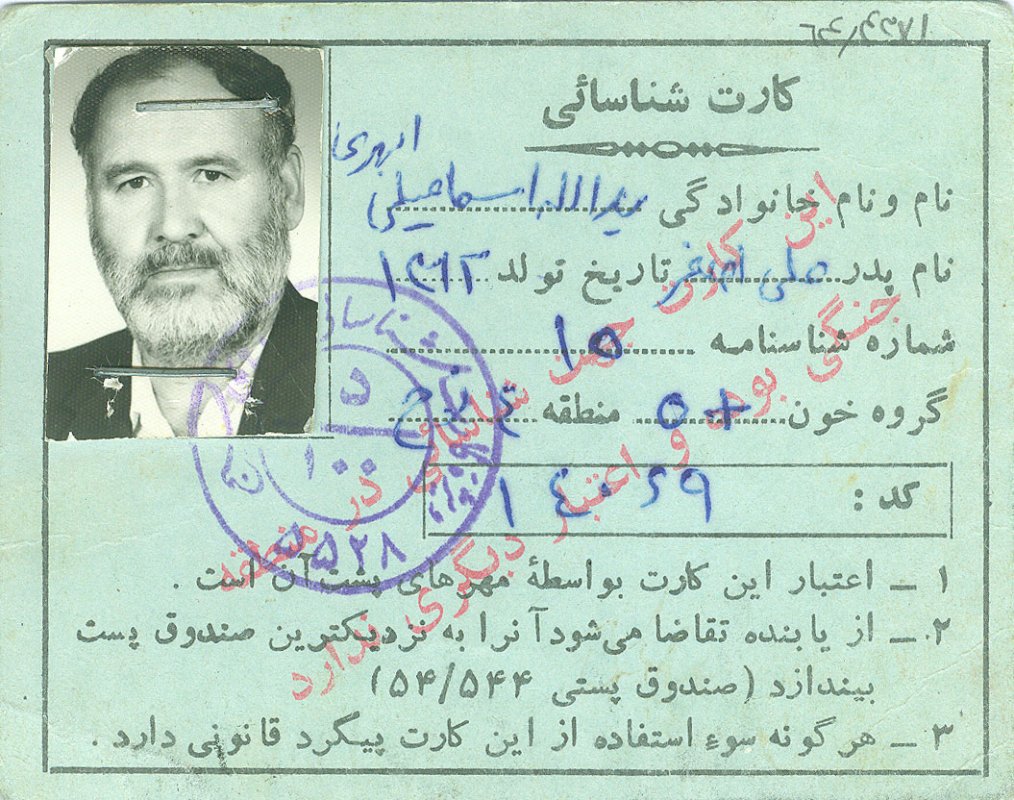 کارت شناسائی
ابهری
نام و نام خانوادگی یداله اسماعیلی
نام پدر علی اصغر تاریخ تولد
شماره شناسنامه ۱۵
گروه خون O+ منطقه
کد :
۱ ـ اعتبار این کارت بواسطهٔ مهرهای پشت آن است .
۲ ـ از یابنده تقاضا می‌شود آنرا به نزدیکترین صندوق پست
بیندازد (صندوق پستی ۵۴/۵۴۴)
۳ ـ هرگونه سوء استفاده از این کارت پیگرد قانونی دارد .
این کارت جهت شناسائی در منطقه
جنگی بوده و اعتبار دیگری ندارد
د
۱۰۰
۵۵۲۸